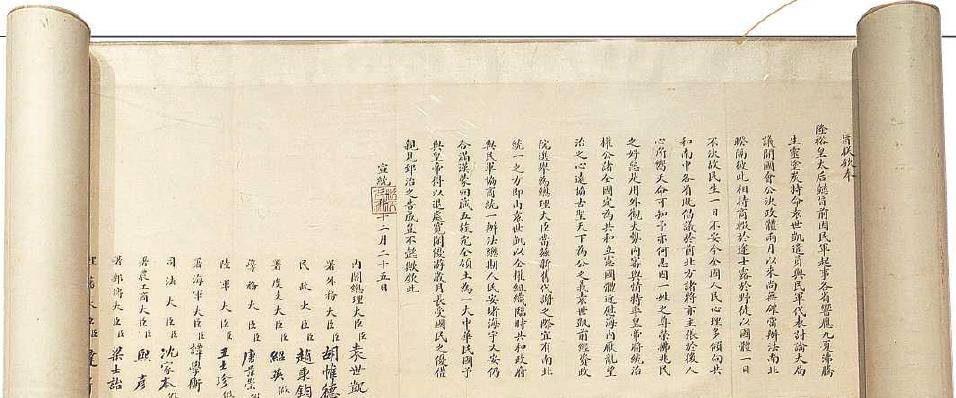 奉
旨朕欽奉
隆裕皇太后懿旨前因民軍起事各省響應九夏沸騰
生靈塗炭特命袁世凱遣員與民軍代表討論大局
議開國會公決政體兩月以來尚無確當辦法南北
暌隔彼此相持商輟於途士露於野徒以國體一日
不決故民生一日不安今全國人民心理多傾向共
和南中各省既倡議於前北方諸將亦主張於後人
心所嚮天命可知予亦何忍因一姓之尊榮拂兆民
之好惡是用外觀大勢內審輿情特率皇帝將統治
權公諸全國定為共和立憲國體近慰海內厭亂望
治之心遠協古聖天下為公之義袁世凱前經資政
院選舉為總理大臣當茲新舊代謝之際宜有南北
統一之方即由袁世凱以全權組織臨時共和政府
與民軍協商統一辦法總期人民安堵海宇乂安仍
合滿漢蒙回藏五族完全領土為一大中華民國予
與皇帝得以退處寬閒優游歲月長受國民之優禮
親見郅治之告成豈不懿歟欽此
宣統三年十二月二十五日
內閣總理大臣臣袁世凱
署外務大臣臣胡惟德
民政大臣臣趙秉鈞
署度支大臣臣紹英假
學務大臣臣唐景崇
陸軍大臣臣王士珍假
署海軍大臣臣譚學衡
司法大臣臣沈家本
署農工商大臣臣熙彥
署郵傳大臣臣梁士詒
理藩大臣臣達